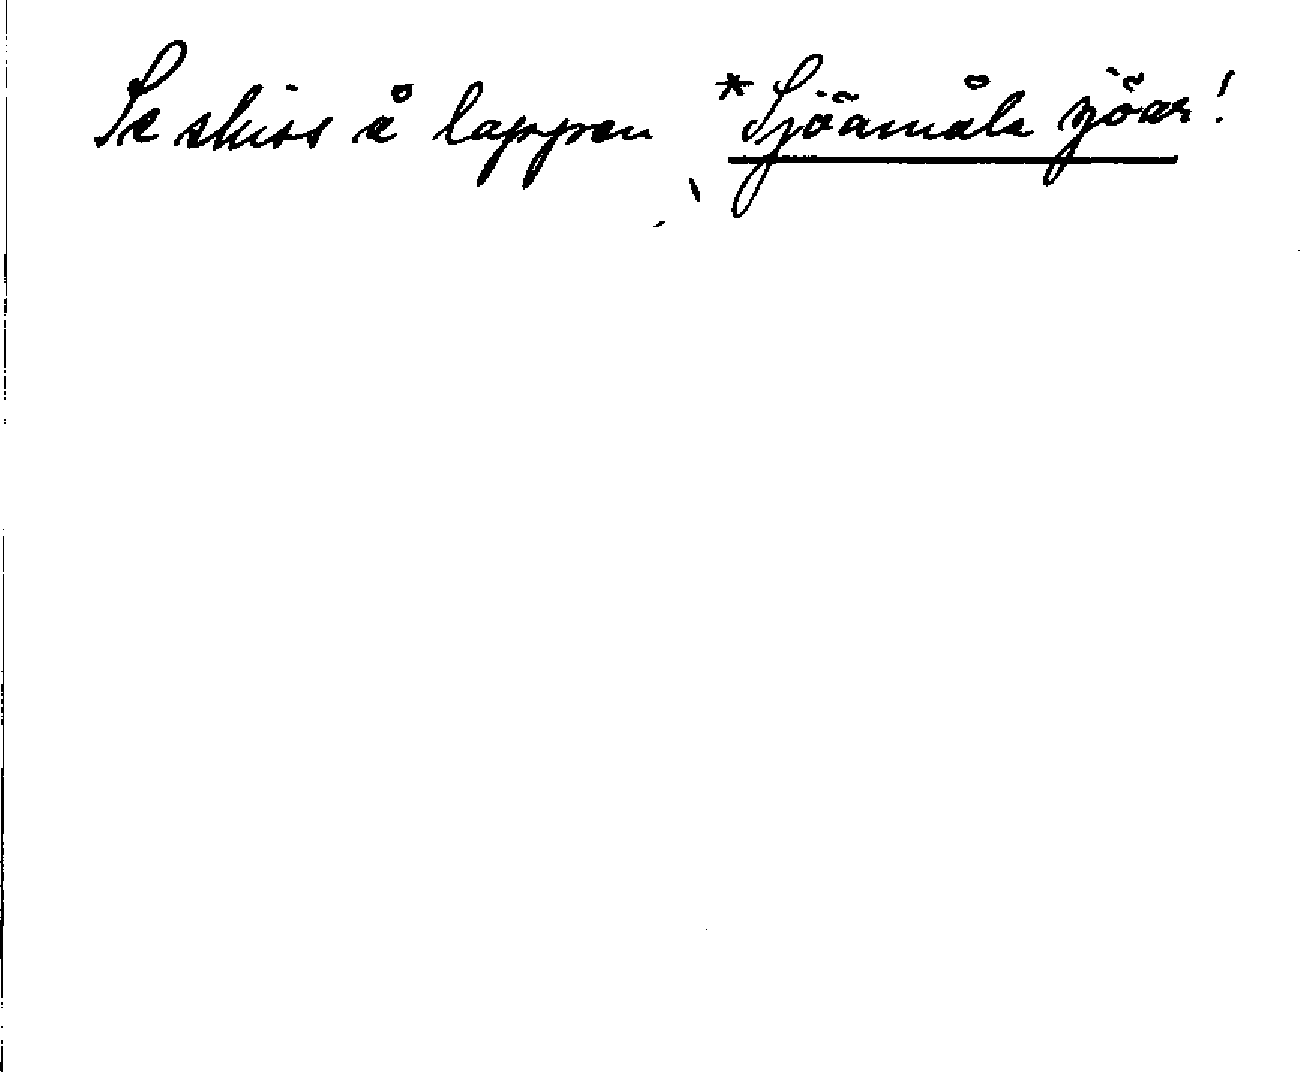 Se skiss å lappen *Sjöamåla sjöar!